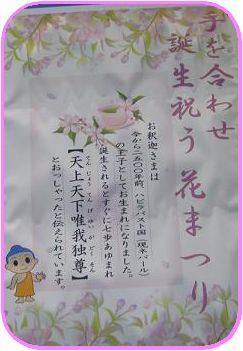 手を合わせ
誕生祝う花まつり
お釈迦さまは
今から二五〇〇年前、カピラバスト国(現ネパール)
の王子としてお生まれになりました。
誕生されるとすぐに七歩あゆまれ
【天上天下唯我独尊】
てんじょうてんげゆいがどくそん
とおっしゃったと伝えられています。